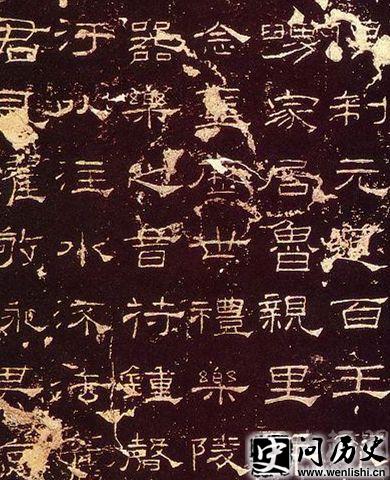 制元道百王
舅家居魯親里
念聖歷世禮樂陵
器樂之音苻鐘磬
汙以注水流法舊
君風燿敬詠其
史问历史
www.wenlishi.cn